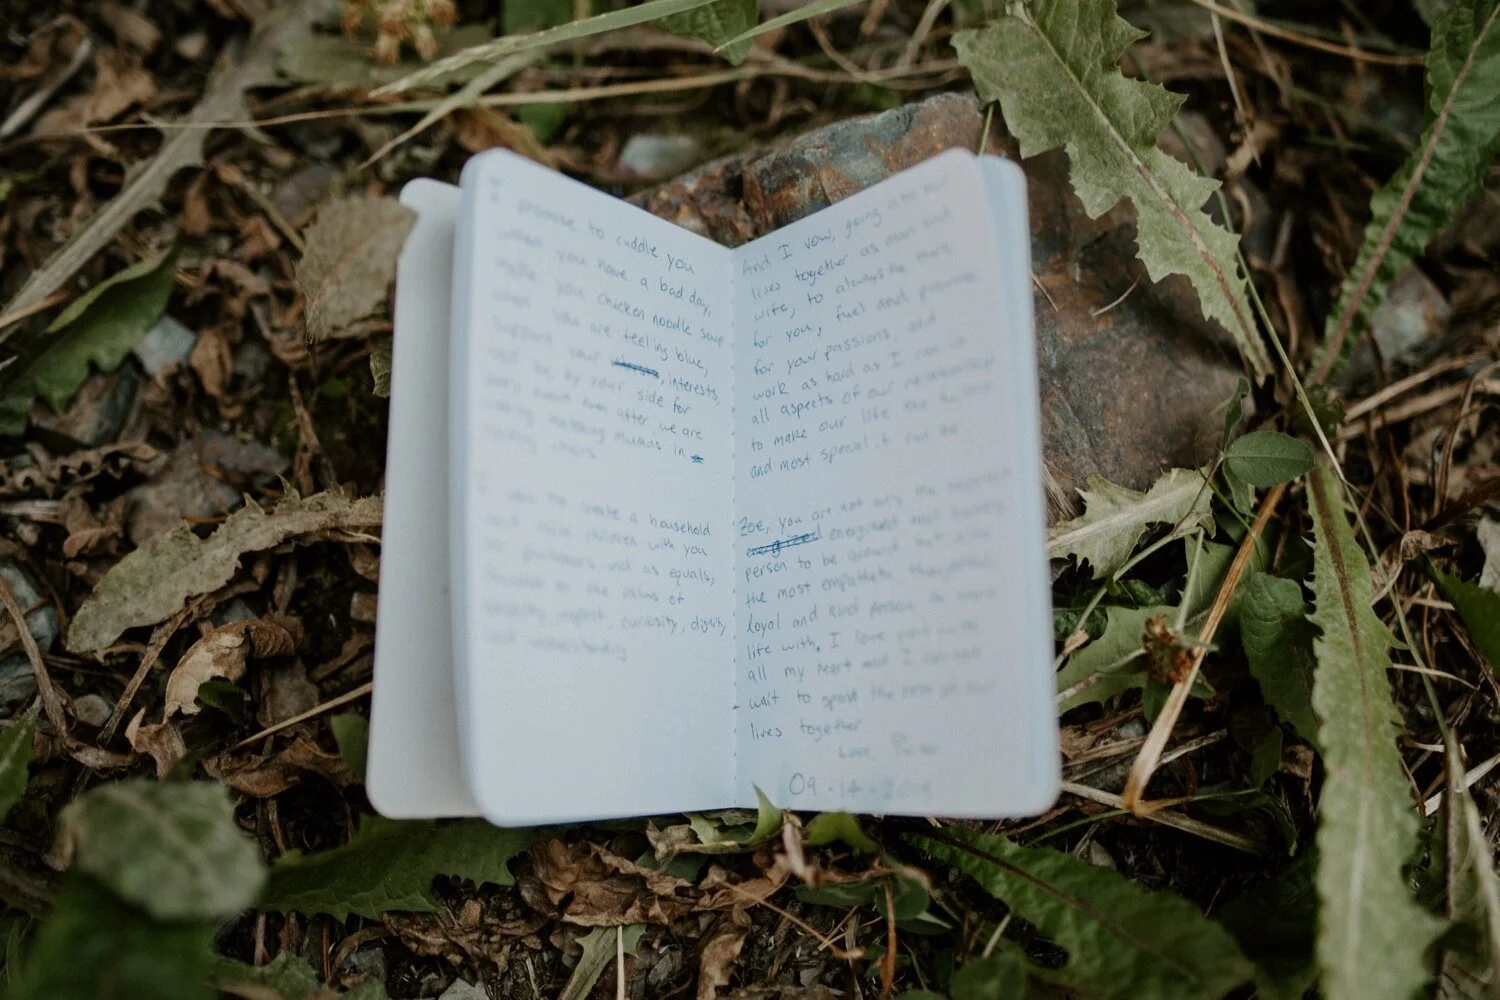 I promise to cuddle you
when you have a bad day,
make you chicken noodle soup
when you are feeling blue,
support your interests,
and be by your side for
after, we are
matching mumus in

create a household
children with you
and as equals,
the values of
curiosity, dignity,
and understanding

And I vow, going into our
lives together as man and
wife, to always be there
for you, fuel and promote
for your passions, and
work as hard as I can in
all aspects of our relationship
to make our life the
and most special it can be

Zoe, you are not only the
energized energized and
person to be around but also
the most empathetic,
loyal and kind person to share
life with. I love you with
all my heart and I can not
wait to spend the rest of our
lives together
Love,
09.14.